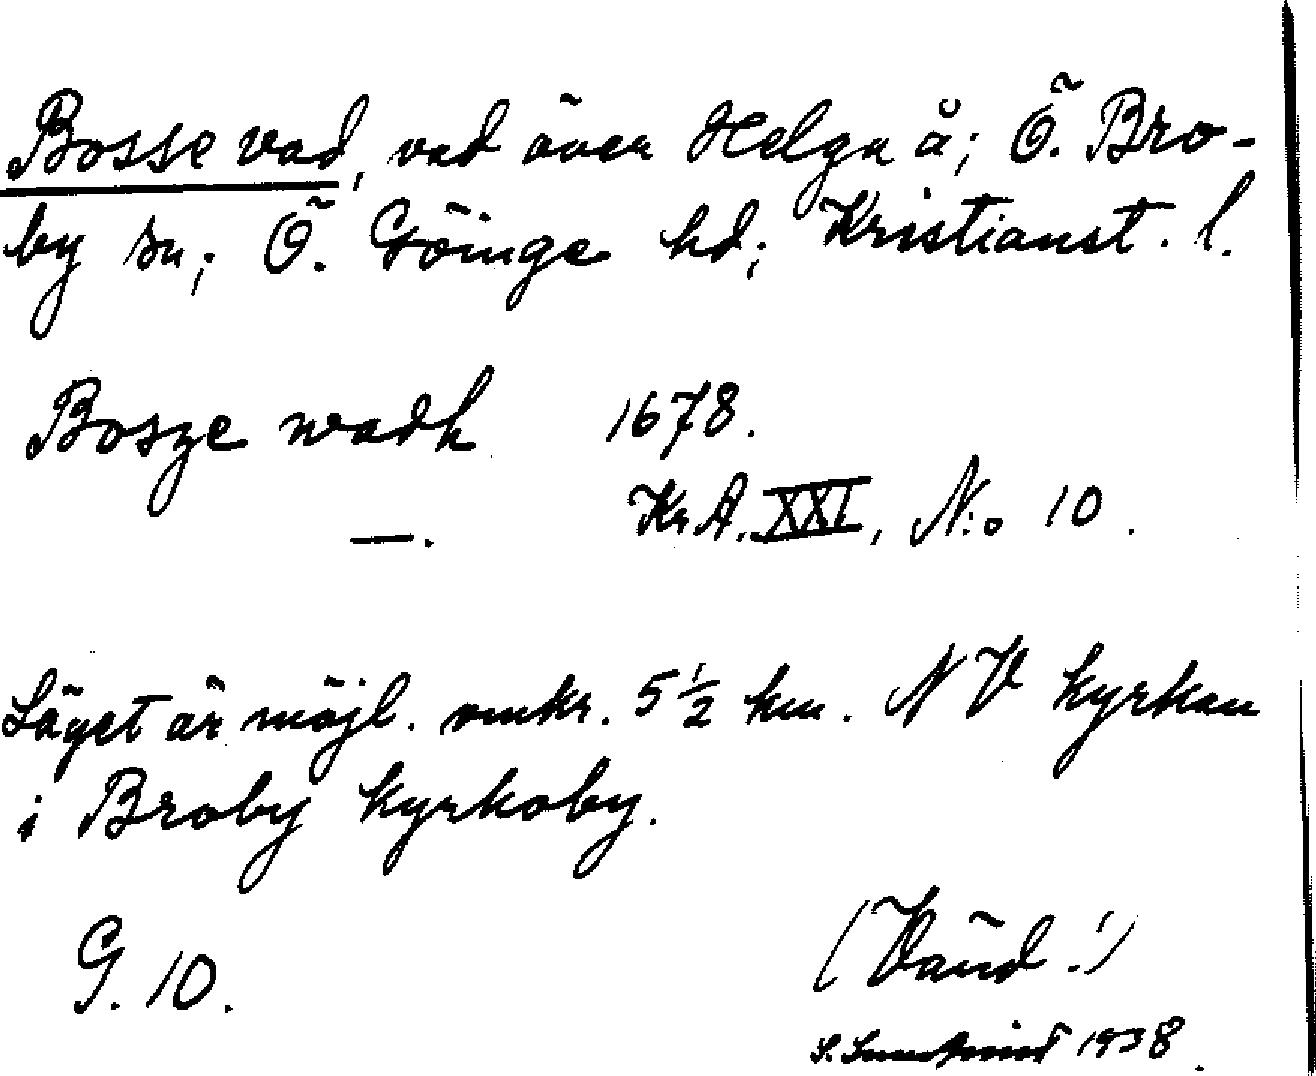 Bosse vad, vad över Helga å; Ö. Bro-
by sn; Ö. Göinge hd; Kristianst. l.
Bosze wadh 1678.
—. Kr A. XXI, N:o 10.
Läget är möjl. omkr. 5 ½ km. NV kyrkan
i Broby kyrkoby.
G. 10.
(Vänd!)
S. 1938.